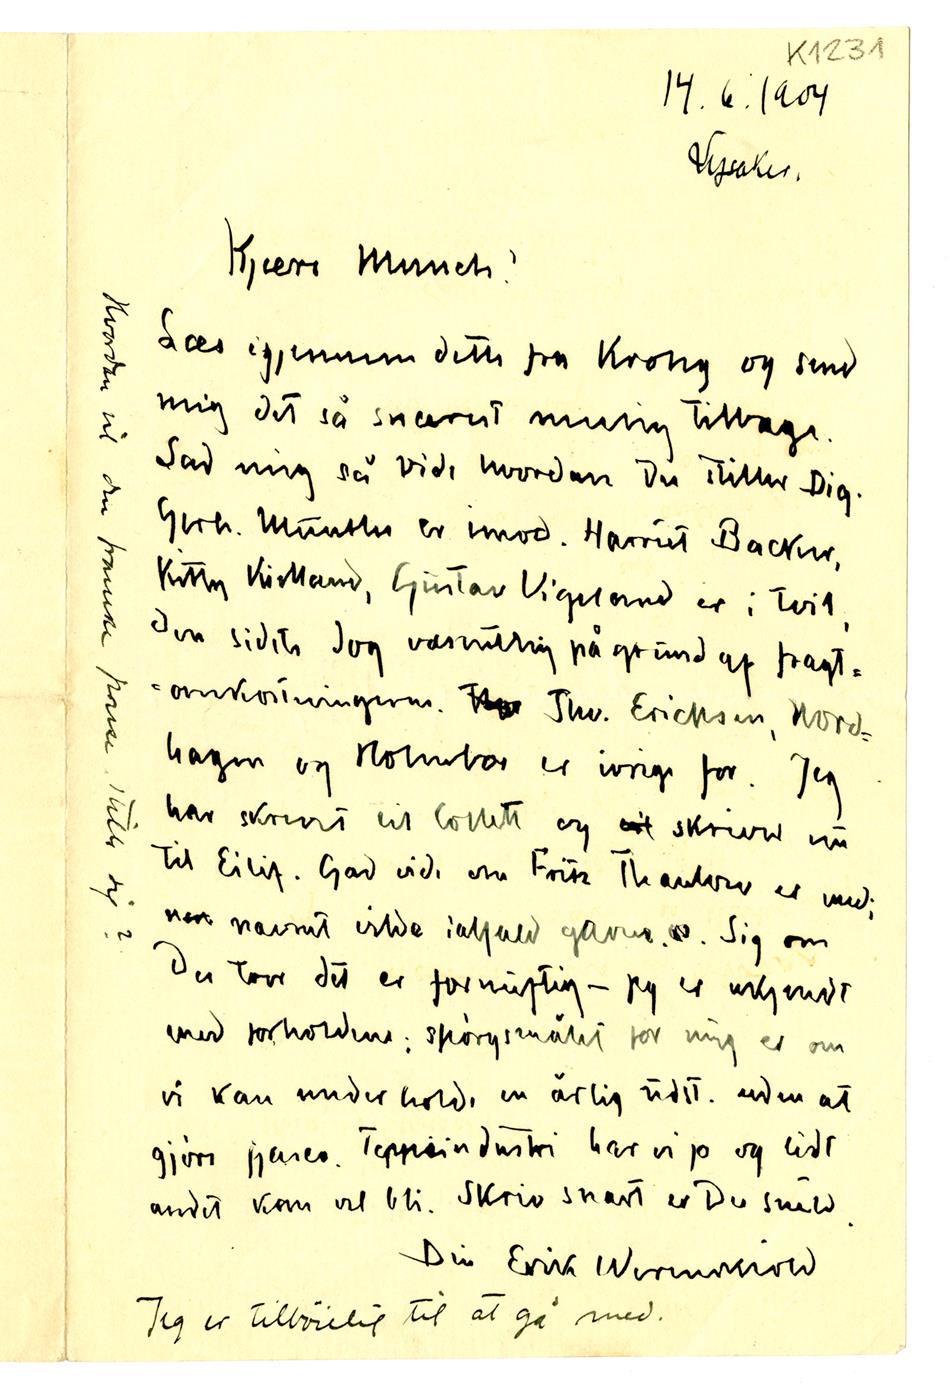 K1231
14.6.1904
Lysaker.
Kjære Munch!
Læs igjennem dette fra Krohg og send
mig det så snarest mulig tilbage.
Lad mig så vide hvordan Du stiller Dig.
Gerh. Munthe er imod. Harriet Backer,
Kitty Kielland, Gustav Vigeland er i tvil,
den sidste dog væsentlig på grund af fragt=
=omkostningerne. Thv. Erichsen, Nord=
hagen og Holmboe er ivrige for. Jeg
har skrevet til Collett og skriver nu
til Eilif. Gad vide om Fritz Thaulow er med;
navnet vilde ialfald gavne. Sig om
Du tror det er fornuftig – jeg er ukjendt
med forholdene; spørgsmålet for mig er om
vi kan underholde en årlig udst. uden at
gjøre fiasco. Teppeindustri har vi jo og lidt
andet kan vel bli. Skriv snart er Du snild.
Din Erik Werenskiold
Jeg er tilbøielig til at gå med.
Hvordan vil den franske presse stille sig?